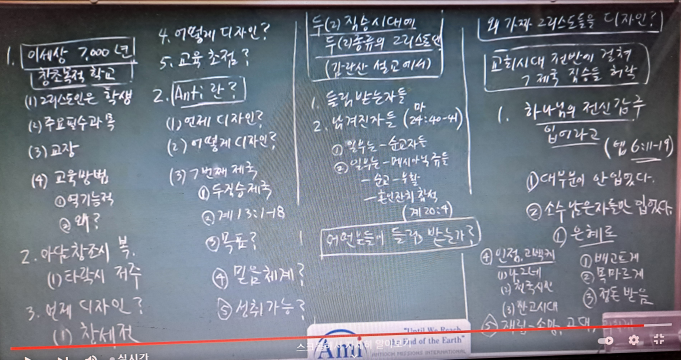 1. 이세상 7,000년
창조목적 학교
(1) 그리스도인은 학생
(2) 주요필수과목
(3) 교장
(4) 교육방법
① 역기능적
② 왜?
2. 아담창조시 복.
(1) 타락시 저주
3. 언제 디자인?
(1) 창세전
4. 어떻게 디자인?
5. 교육 초점?
2. Anti 란?
(1) 언제 디자인?
(2) 어떻게 디자인?
(3) 7번째 제국
① 두짐승제국
② 계13:1-18
③ 목표?
④ 믿음체계?
⑤ 성취가능?
두(2) 짐승시대에
두(2)종류의 그리스도인
(감람산 설교에서)
1. 들림받는자들
2. 남겨진자들 (마24:40-41)
① 일부는 - 순교자들
② 일부는 - 메시아닉유대
- 순교 - 부활
- 혼인잔치 참석
(계20:4)
어떤분들이 들림 받는가?
왜 가짜 그리스도들을 디자인?
교회시대 전반에 걸쳐
7제국 짐승들 허락
1. 하나님의 전신갑주
입어라고
(엡 6:11-19)
① 대부분이 안 입었다.
② 소수 남은자들만 입었다.
① 은혜로
① 배고프게
② 목마르게
③ 정든 받음
④ 인정, 고백키
(1) 나그네
(2) 천국시민
(3) 환고시대
⑤ 재림-소망, 고대,
"Until We Reach
the End of the Earth"
Ami
MISSION INTERNATIONAL
실시간